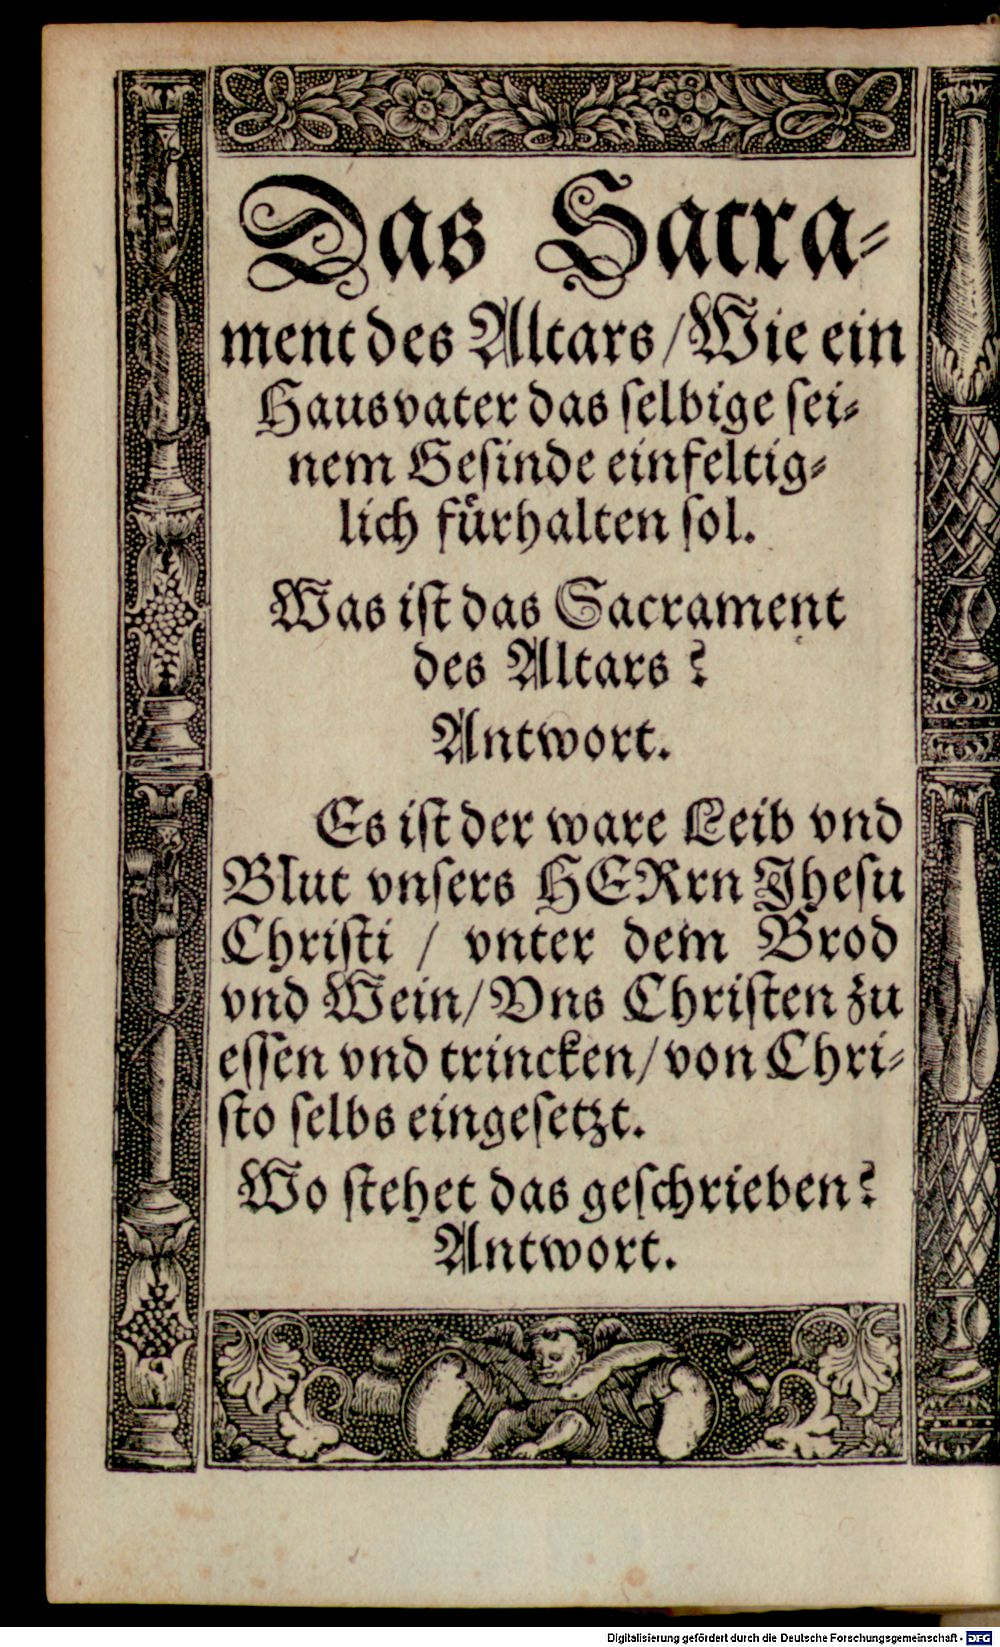 Das Sacra⸗
ment des Altars / Wie ein
Hausvater das ſelbige ſei⸗
nem Geſinde einfeltig⸗
lich fuͤrhalten ſol.
Was iſt das Sacrament
des Altars?
Antwort.
Es iſt der ware Leib vnd
Blut vnſers HERrn Jheſu
Chriſti / vnter dem Brod
vnd Wein / Vns Chriſten zu
eſſen vnd trincken / von Chri⸗
ſto ſelbs eingeſetzt.
Wo ſtehet das geſchrieben?
Antwort.
Digitalisierung gefördert durch die Deutsche Forschungsgemeinschaft - DFG